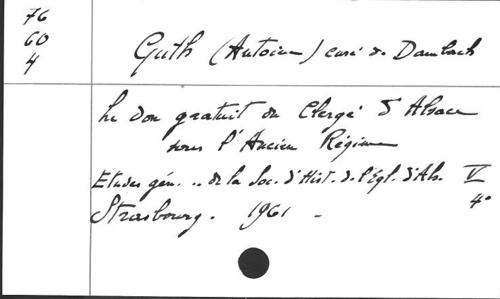 76
60
4
Guth (Antoine) curé de Dambach
Le Don gratuit du Clergé d'Alsace
sous l'Ancien Régime
Etudes gén. .. de la Soc. d'Hist. de l'Egl. d'Als. V
Strasbourg. 1961 - 4°